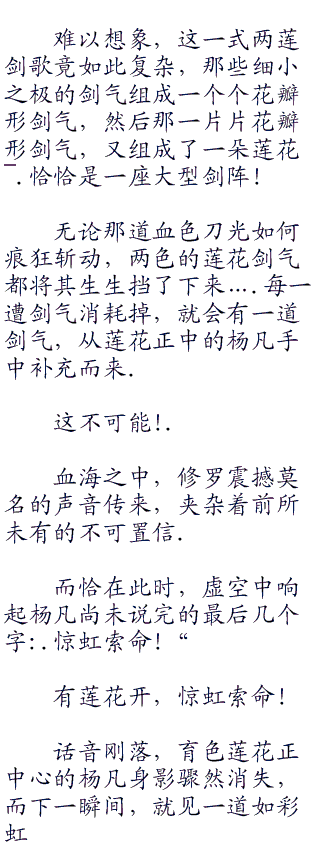 难以想象，这一式两莲
剑歌竟如此复杂，那些细小
之极的剑气组成一个个花瓣
形剑气，然后那一片片花瓣
形剑气，又组成了一朵莲花
‾.恰恰是一座大型剑阵！
无论那道血色刀光如何
疯狂斩动，两色的莲花剑气
都将其生生挡了下来….每一
遭剑气消耗掉，就会有一道
剑气，从莲花正中的杨凡手
中补充而来.
这不可能！.
血海之中，修罗震撼莫
名的声音传来，夹杂着前所
未有的不可置信.
而恰在此时，虚空中响
起杨凡尚未说完的最后几个
字:.惊虹索命！“
有莲花开，惊虹索命！
话音刚落，育色莲花正
中心的杨凡身影骤然消失，
而下一瞬间，就见一道如彩
虹